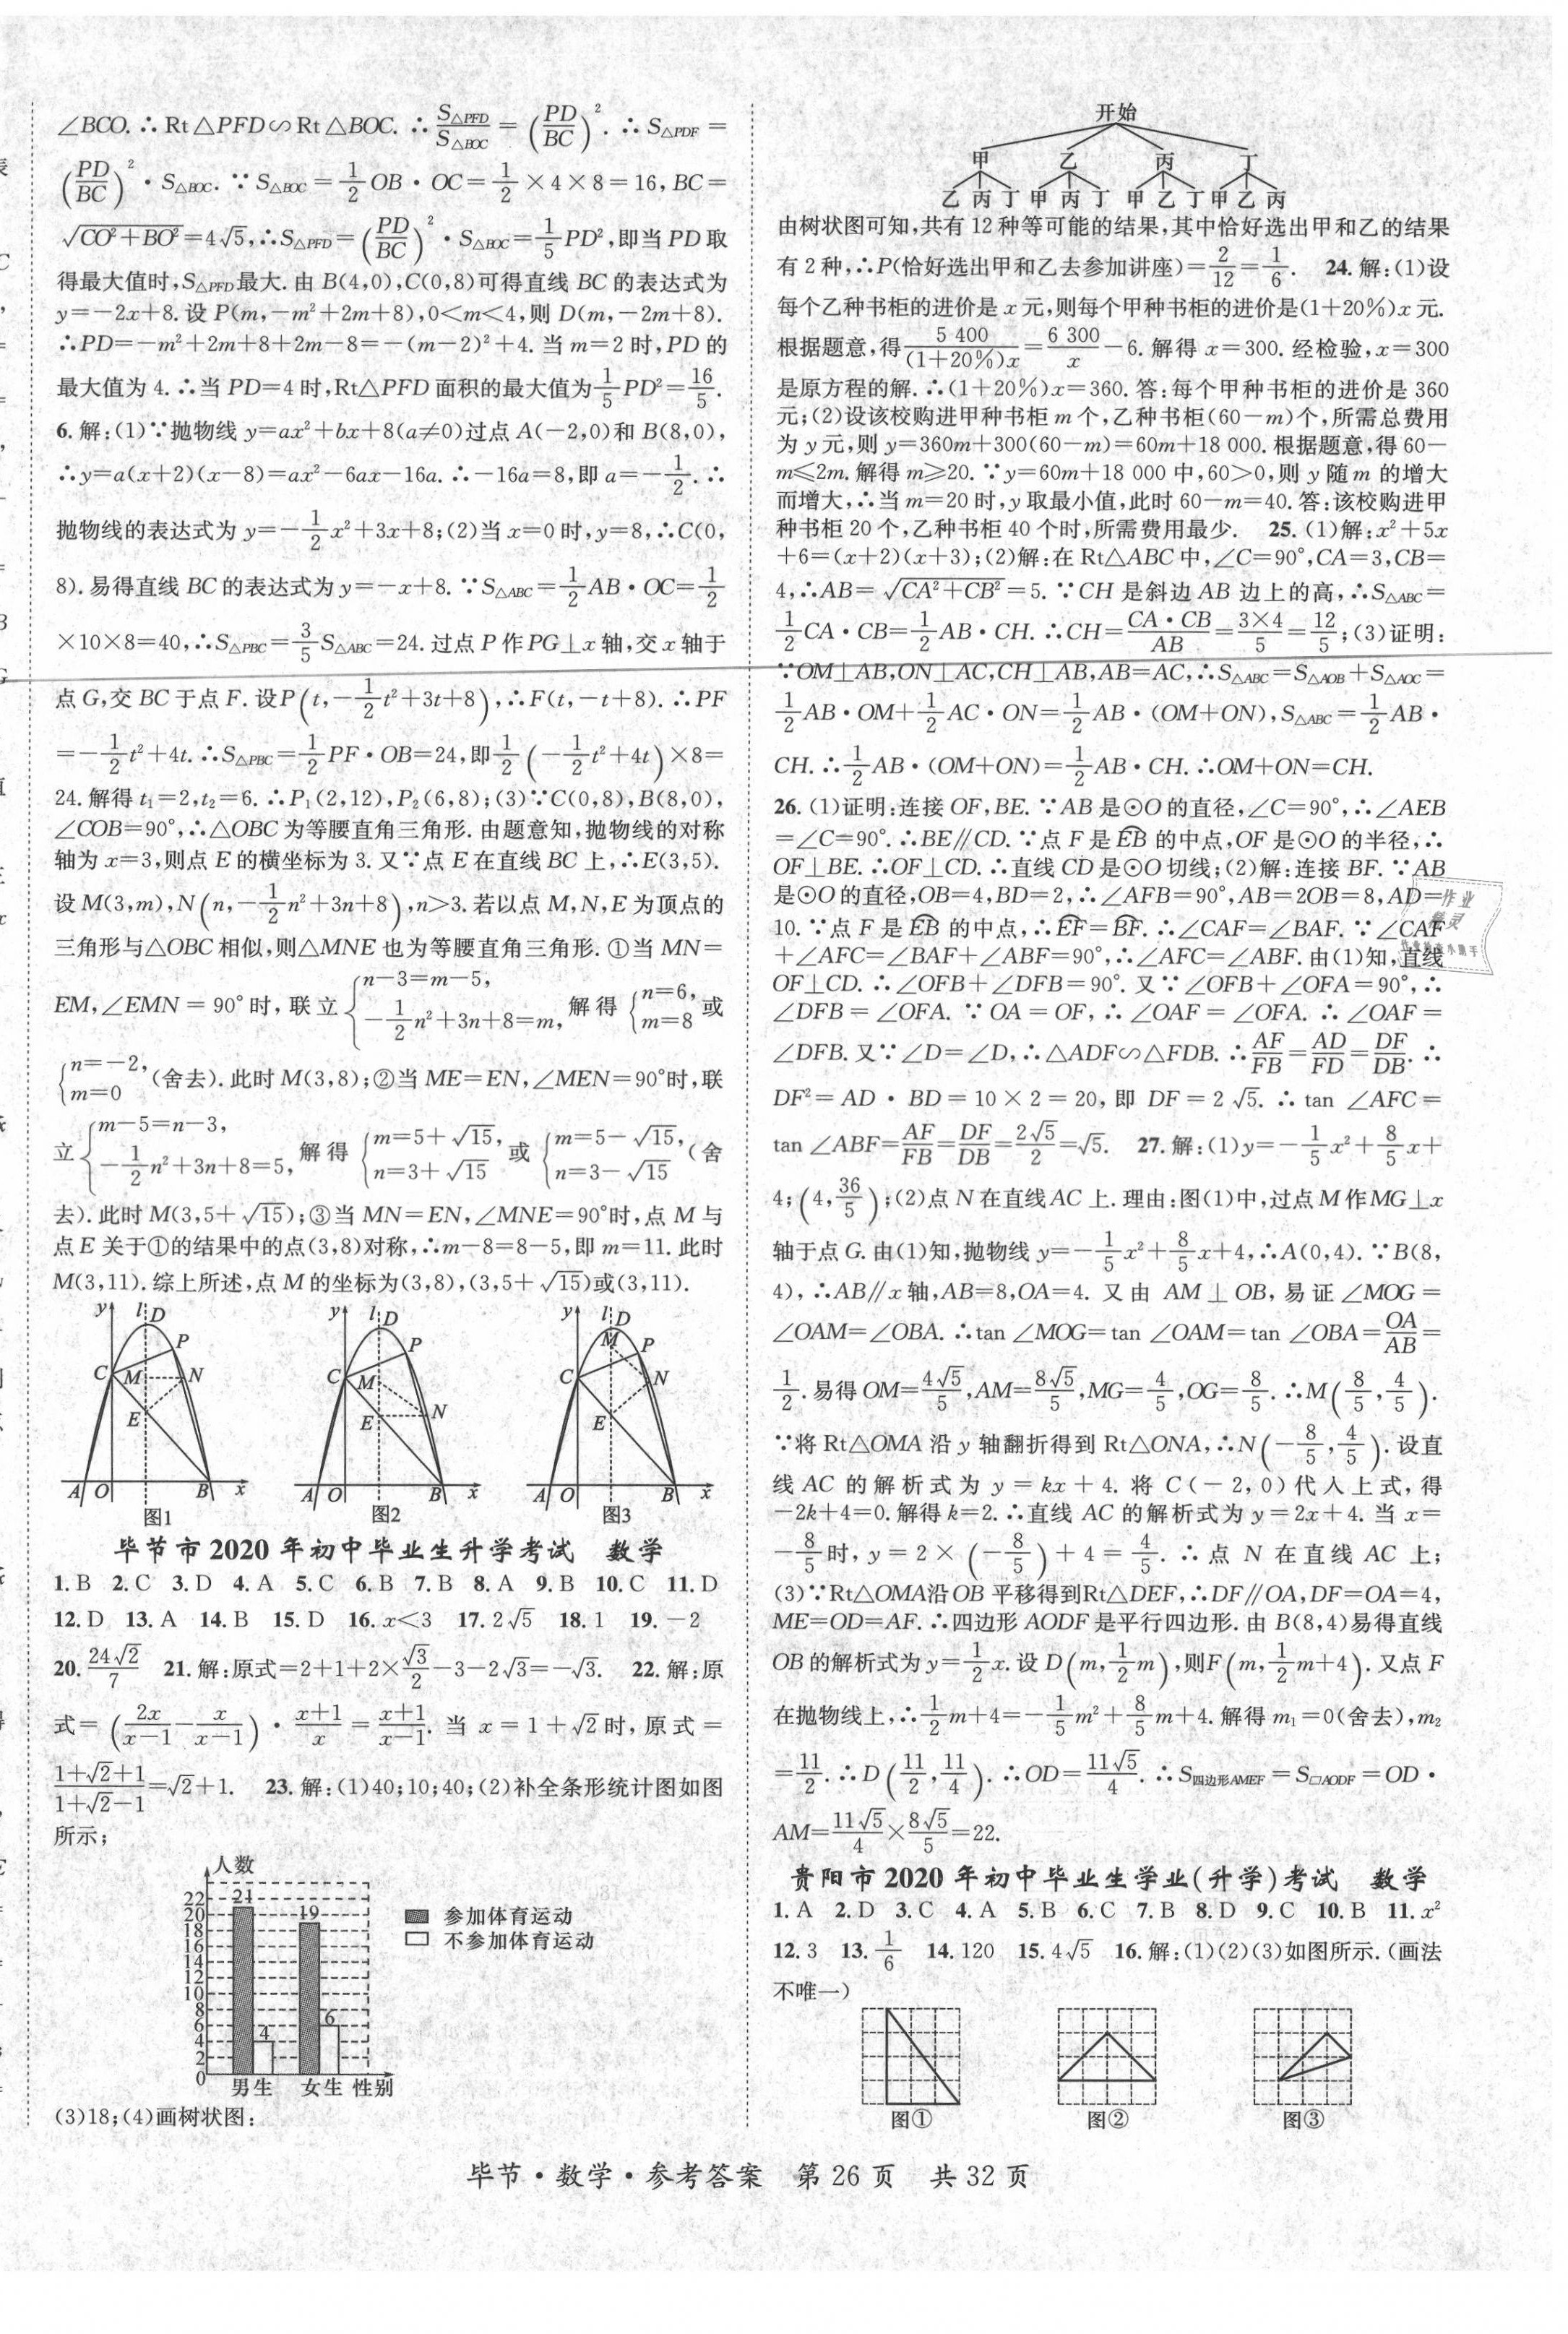 ∠BCO.∴Rt△PFD∽Rt△BOC.∴S△PFD/S△BOC=(PD/BC)².∴S△PDF=
(PD/BC)²·S△BOC.∵S△BOC=1/2OB·OC=1/2×4×8=16,BC=
√(CO²+BO²)=4√5,∴S△PFD=(PD/BC)²·S△BOC=1/5PD²,即当PD取
得最大值时,S△PFD最大.由B(4,0),C(0,8)可得直线BC的表达式为
y=-2x+8.设P(m,-m²+2m+8),0<m<4,则D(m,-2m+8).
∴PD=-m²+2m+8+2m-8=-(m-2)²+4.当m=2时,PD的
最大值为4.∴当PD=4时,Rt△PFD面积的最大值为1/5PD²=16/5.
6.解:(1)∵抛物线y=ax²+bx+8(a≠0)过点A(-2,0)和B(8,0),
∴y=a(x+2)(x-8)=ax²-6ax-16a.∴-16a=8,即a=-1/2.∴
抛物线的表达式为y=-1/2x²+3x+8;(2)当x=0时,y=8,∴C(0,
8).易得直线BC的表达式为y=-x+8.∵S△ABC=1/2AB·OC=1/2
×10×8=40,∴S△PBC=3/5S△ABC=24.过点P作PG⊥x轴,交x轴于
点G,交BC于点F.设P(t,-1/2t²+3t+8),∴F(t,-t+8).∴PF
=-1/2t²+4t.∴S△PBC=1/2PF·OB=24,即1/2(-1/2t²+4t)×8=
24.解得t₁=2,t₂=6.∴P₁(2,12),P₂(6,8);(3)∵C(0,8),B(8,0),
∠COB=90°,∴△OBC为等腰直角三角形.由题意知,抛物线的对称
轴为x=3,则点E的横坐标为3.又∵点E在直线BC上,∴E(3,5).
设M(3,m),N(n,-1/2n²+3n+8),n>3.若以点M,N,E为顶点的
三角形与△OBC相似,则△MNE也为等腰直角三角形.①当MN=
EM,∠EMN=90°时,联立{n-3=m-5, -1/2n²+3n+8=m,解得{n=6, m=8或
{n=-2, m=0(舍去).此时M(3,8);②当ME=EN,∠MEN=90°时,联
立{m-5=n-3, -1/2n²+3n+8=5,解得{m=5+√15, n=3+√15或{m=5-√15, n=3-√15(舍
去).此时M(3,5+√15);③当MN=EN,∠MNE=90°时,点M与
点E关于①的结果中的点(3,8)对称,∴m-8=8-5,即m=11.此时
M(3,11).综上所述,点M的坐标为(3,8),(3,5+√15)或(3,11).
y l D P C M N E A O B x 图1
y l D P C M E N A O B x 图2
y l D M P C N E A O B x 图3
毕节市2020年初中毕业生升学考试 数学
1.B 2.C 3.D 4.A 5.C 6.B 7.B 8.A 9.B 10.C 11.D
12.D 13.A 14.B 15.D 16.x<3 17.2√5 18.1 19.-2
20.24√2/7 21.解:原式=2+1+2×√3/2-3-2√3=-√3. 22.解:原
式=(2x/(x-1)-x/(x-1))·(x+1)/x=(x+1)/(x-1).当x=1+√2时,原式=
(1+√2+1)/(1+√2-1)=√2+1. 23.解:(1)40;10;40;(2)补全条形统计图如图
所示;
人数
22 20 18 16 14 12 10 8 6 4 2 0
21 4 19 6
男生 女生 性别
参加体育运动
不参加体育运动
(3)18;(4)画树状图:
开始
甲 乙 丙 丁
乙 丙 丁 甲 丙 丁 甲 乙 丁 甲 乙 丙
由树状图可知,共有12种等可能的结果,其中恰好选出甲和乙的结果
有2种,∴P(恰好选出甲和乙去参加讲座)=2/12=1/6. 24.解:(1)设
每个乙种书柜的进价是x元,则每个甲种书柜的进价是(1+20%)x元.
根据题意,得5 400/((1+20%)x)=6 300/x-6.解得x=300.经检验,x=300
是原方程的解.∴(1+20%)x=360.答:每个甲种书柜的进价是360
元;(2)设该校购进甲种书柜m个,乙种书柜(60-m)个,所需总费用
为y元,则y=360m+300(60-m)=60m+18 000.根据题意,得60-
m≤2m.解得m≥20.∵y=60m+18 000中,60>0,则y随m的增大
而增大,∴当m=20时,y取最小值,此时60-m=40.答:该校购进甲
种书柜20个,乙种书柜40个时,所需费用最少. 25.(1)解:x²+5x
+6=(x+2)(x+3);(2)解:在Rt△ABC中,∠C=90°,CA=3,CB=
4,∴AB=√(CA²+CB²)=5.∵CH是斜边AB边上的高,∴S△ABC=
1/2CA·CB=1/2AB·CH.∴CH=CA·CB/AB=3×4/5=12/5;(3)证明:
∵OM⊥AB,ON⊥AC,CH⊥AB,AB=AC,∴S△ABC=S△AOB+S△AOC=
1/2AB·OM+1/2AC·ON=1/2AB·(OM+ON),S△ABC=1/2AB·
CH.∴1/2AB·(OM+ON)=1/2AB·CH.∴OM+ON=CH.
26.(1)证明:连接OF,BE.∵AB是⊙O的直径,∠C=90°,∴∠AEB
=∠C=90°.∴BE∥CD.∵点F是EB⌢的中点,OF是⊙O的半径,∴
OF⊥BE.∴OF⊥CD.∴直线CD是⊙O切线;(2)解:连接BF.∵AB
是⊙O的直径,OB=4,BD=2,∴∠AFB=90°,AB=2OB=8,AD=
10.∵点F是EB⌢的中点,∴EF⌢=BF⌢.∴∠CAF=∠BAF.∵∠CAF
+∠AFC=∠BAF+∠ABF=90°,∴∠AFC=∠ABF.由(1)知,直线
OF⊥CD.∴∠OFB+∠DFB=90°.又∵∠OFB+∠OFA=90°,∴
∠DFB=∠OFA.∵OA=OF,∴∠OAF=∠OFA.∴∠OAF=
∠DFB.又∵∠D=∠D,∴△ADF∽△FDB.∴AF/FB=AD/FD=DF/DB.∴
DF²=AD·BD=10×2=20,即DF=2√5.∴tan ∠AFC=
tan ∠ABF=AF/FB=DF/DB=2√5/2=√5. 27.解:(1)y=-1/5x²+8/5x+
4;(4,36/5);(2)点N在直线AC上.理由:图(1)中,过点M作MG⊥x
轴于点G.由(1)知,抛物线y=-1/5x²+8/5x+4,∴A(0,4).∵B(8,
4),∴AB∥x轴,AB=8,OA=4.又由AM⊥OB,易证∠MOG=
∠OAM=∠OBA.∴tan ∠MOG=tan ∠OAM=tan ∠OBA=OA/AB=
1/2.易得OM=4√5/5,AM=8√5/5,MG=4/5,OG=8/5.∴M(8/5,4/5).
∵将Rt△OMA沿y轴翻折得到Rt△ONA,∴N(-8/5,4/5).设直
线AC的解析式为y=kx+4.将C(-2,0)代入上式,得
-2k+4=0.解得k=2.∴直线AC的解析式为y=2x+4.当x=
-8/5时,y=2×(-8/5)+4=4/5.∴点N在直线AC上;
(3)∵Rt△OMA沿OB平移得到Rt△DEF,∴DF∥OA,DF=OA=4,
ME=OD=AF.∴四边形AODF是平行四边形.由B(8,4)易得直线
OB的解析式为y=1/2x.设D(m,1/2m),则F(m,1/2m+4).又点F
在抛物线上,∴1/2m+4=-1/5m²+8/5m+4.解得m₁=0(舍去),m₂
=11/2.∴D(11/2,11/4).∴OD=11√5/4.∴S四边形AMEF=S□AODF=OD·
AM=11√5/4×8√5/5=22.
贵阳市2020年初中毕业生学业(升学)考试 数学
1.A 2.D 3.C 4.A 5.B 6.C 7.B 8.D 9.C 10.B 11.x²
12.3 13.1/6 14.120 15.4√5 16.解:(1)(2)(3)如图所示.(画法
不唯一)
图① 图② 图③
毕节·数学·参考答案 第26页 共32页